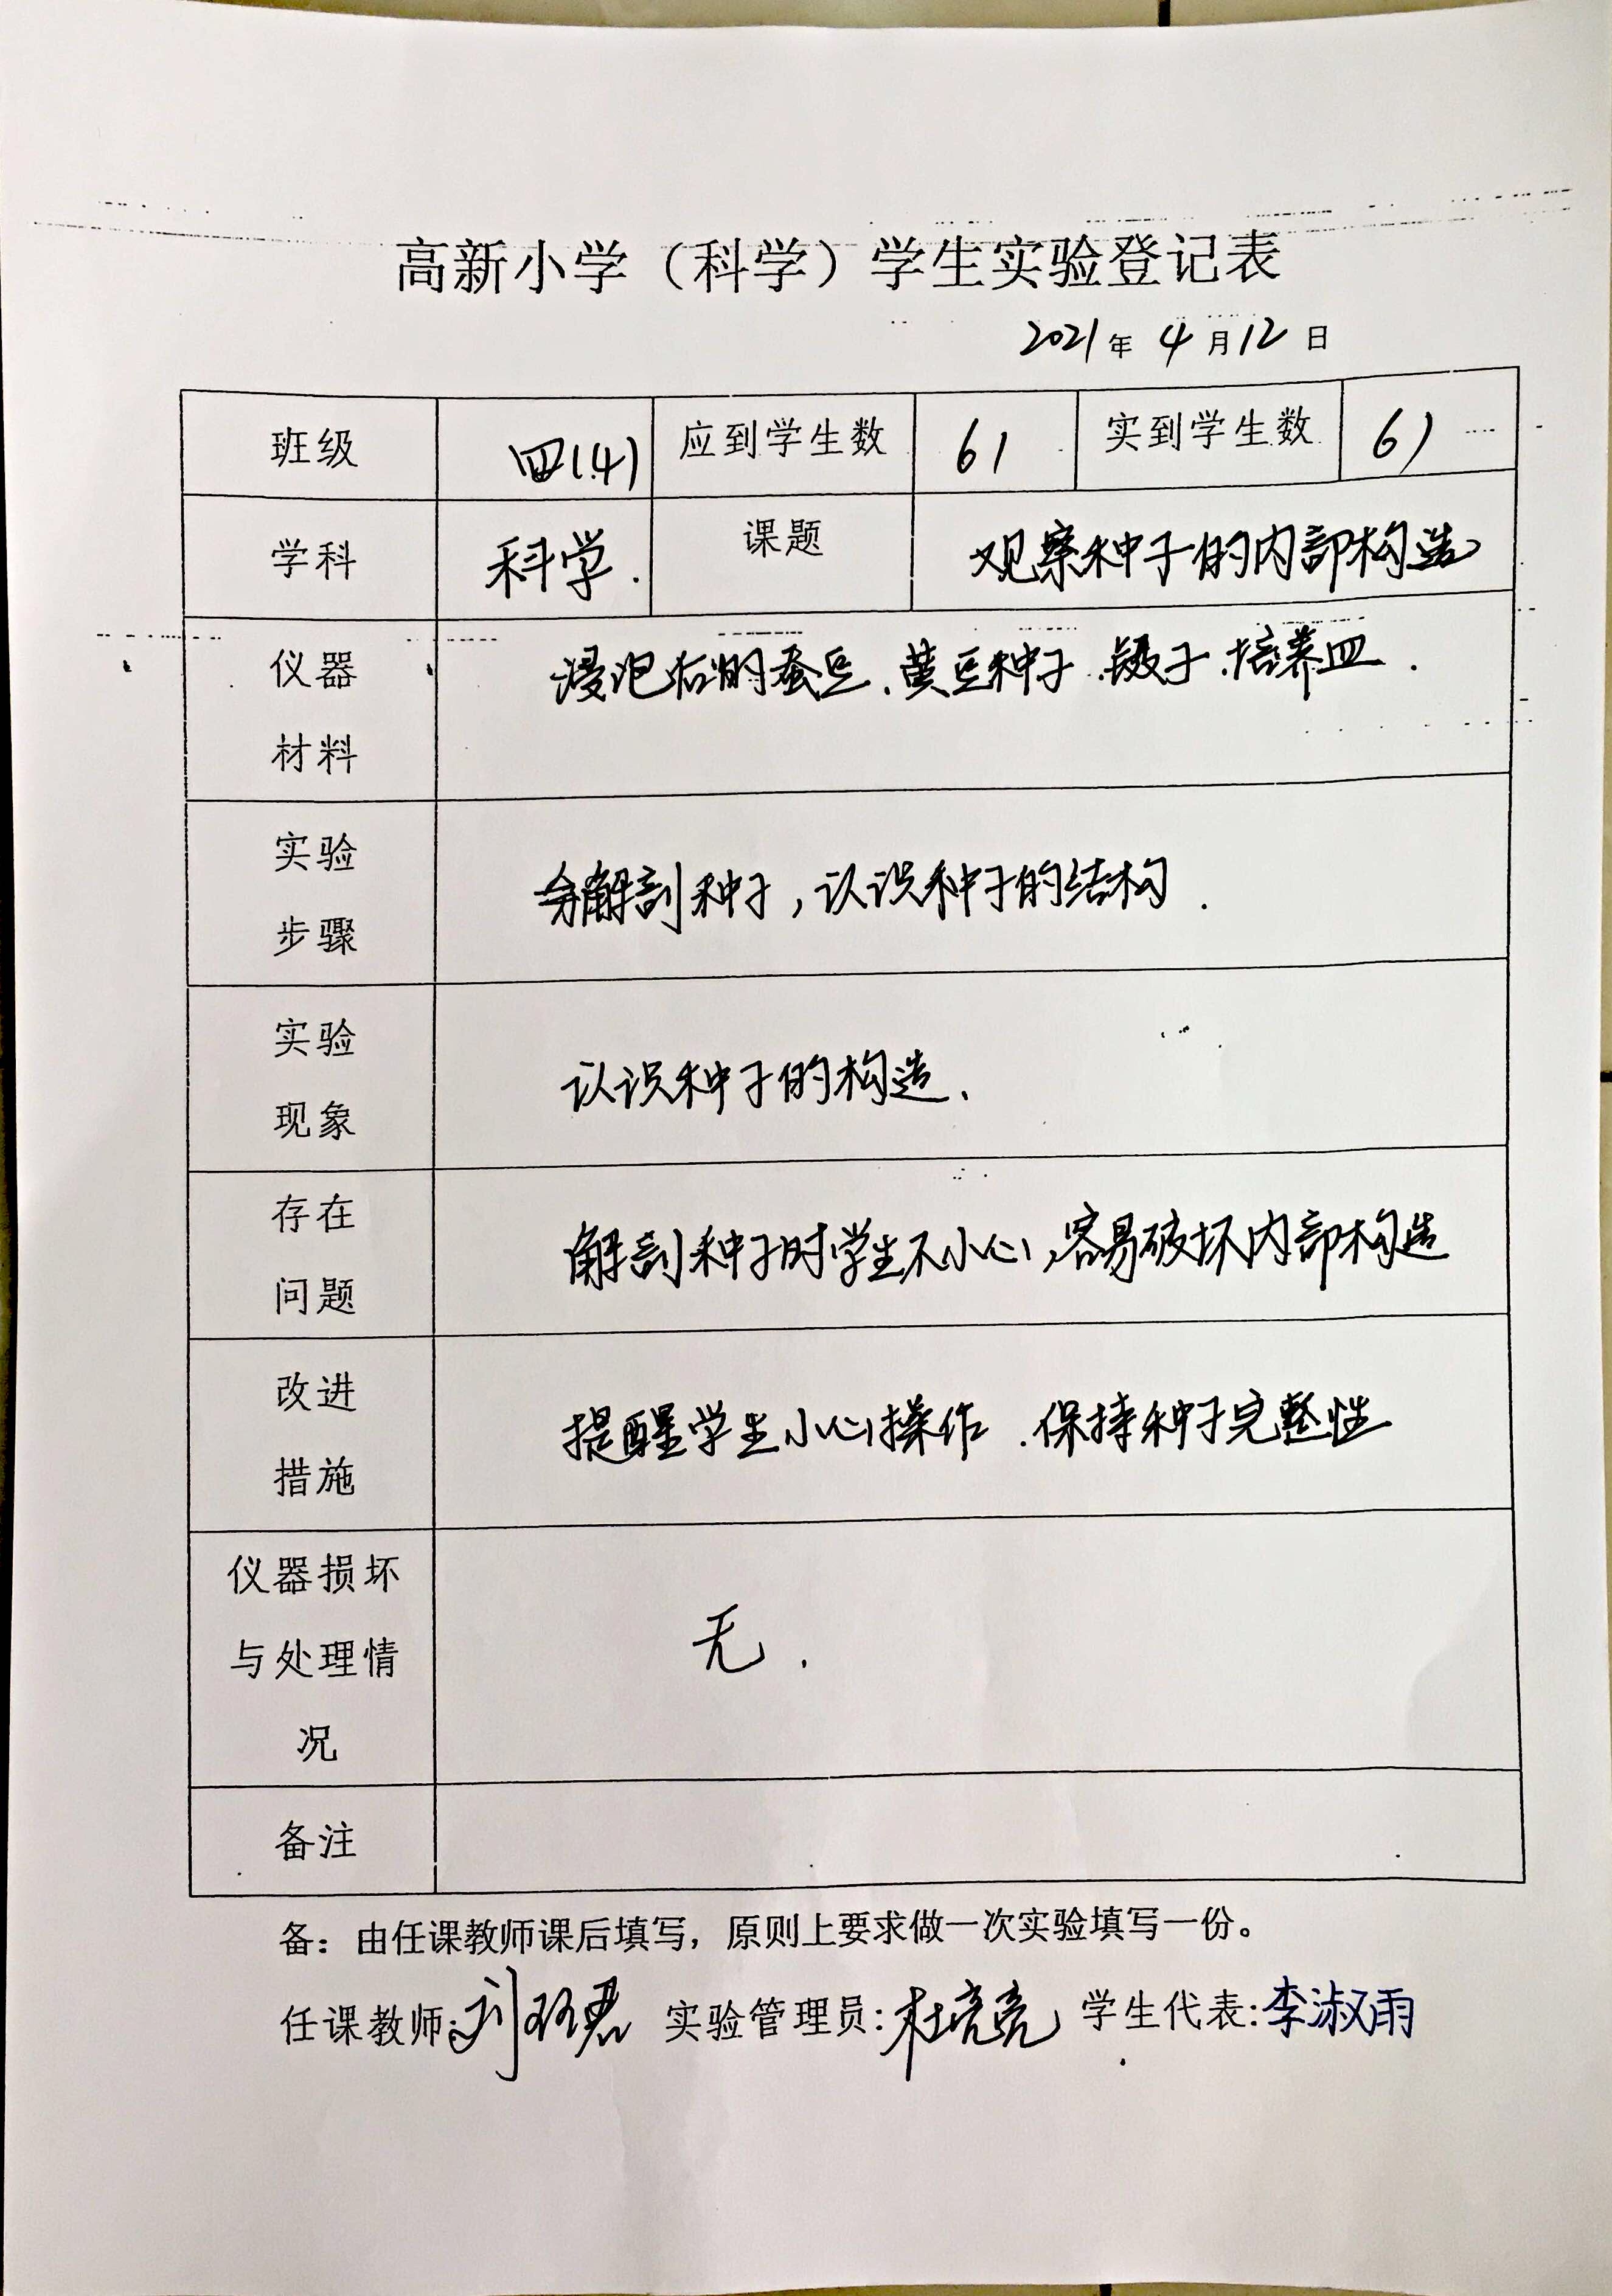 高新小学（科学）学生实验登记表
2021年 4月12日
班级 四(4) 应到学生数 61 实到学生数 61
学科 科学. 课题 观察种子的内部构造
仪器
材料
浸泡后的蚕豆、黄豆种子.镊子.培养皿.
实验
步骤
解剖种子,认识种子的结构.
实验
现象
认识种子的构造.
存在
问题
解剖种子时学生不小心,容易破坏内部构造
改进
措施
提醒学生小心操作.保持种子完整性
仪器损坏
与处理情
况
无.
备注
备：由任课教师课后填写，原则上要求做一次实验填写一份。
任课教师:刘 实验管理员:杜亮亮 学生代表:李淑雨